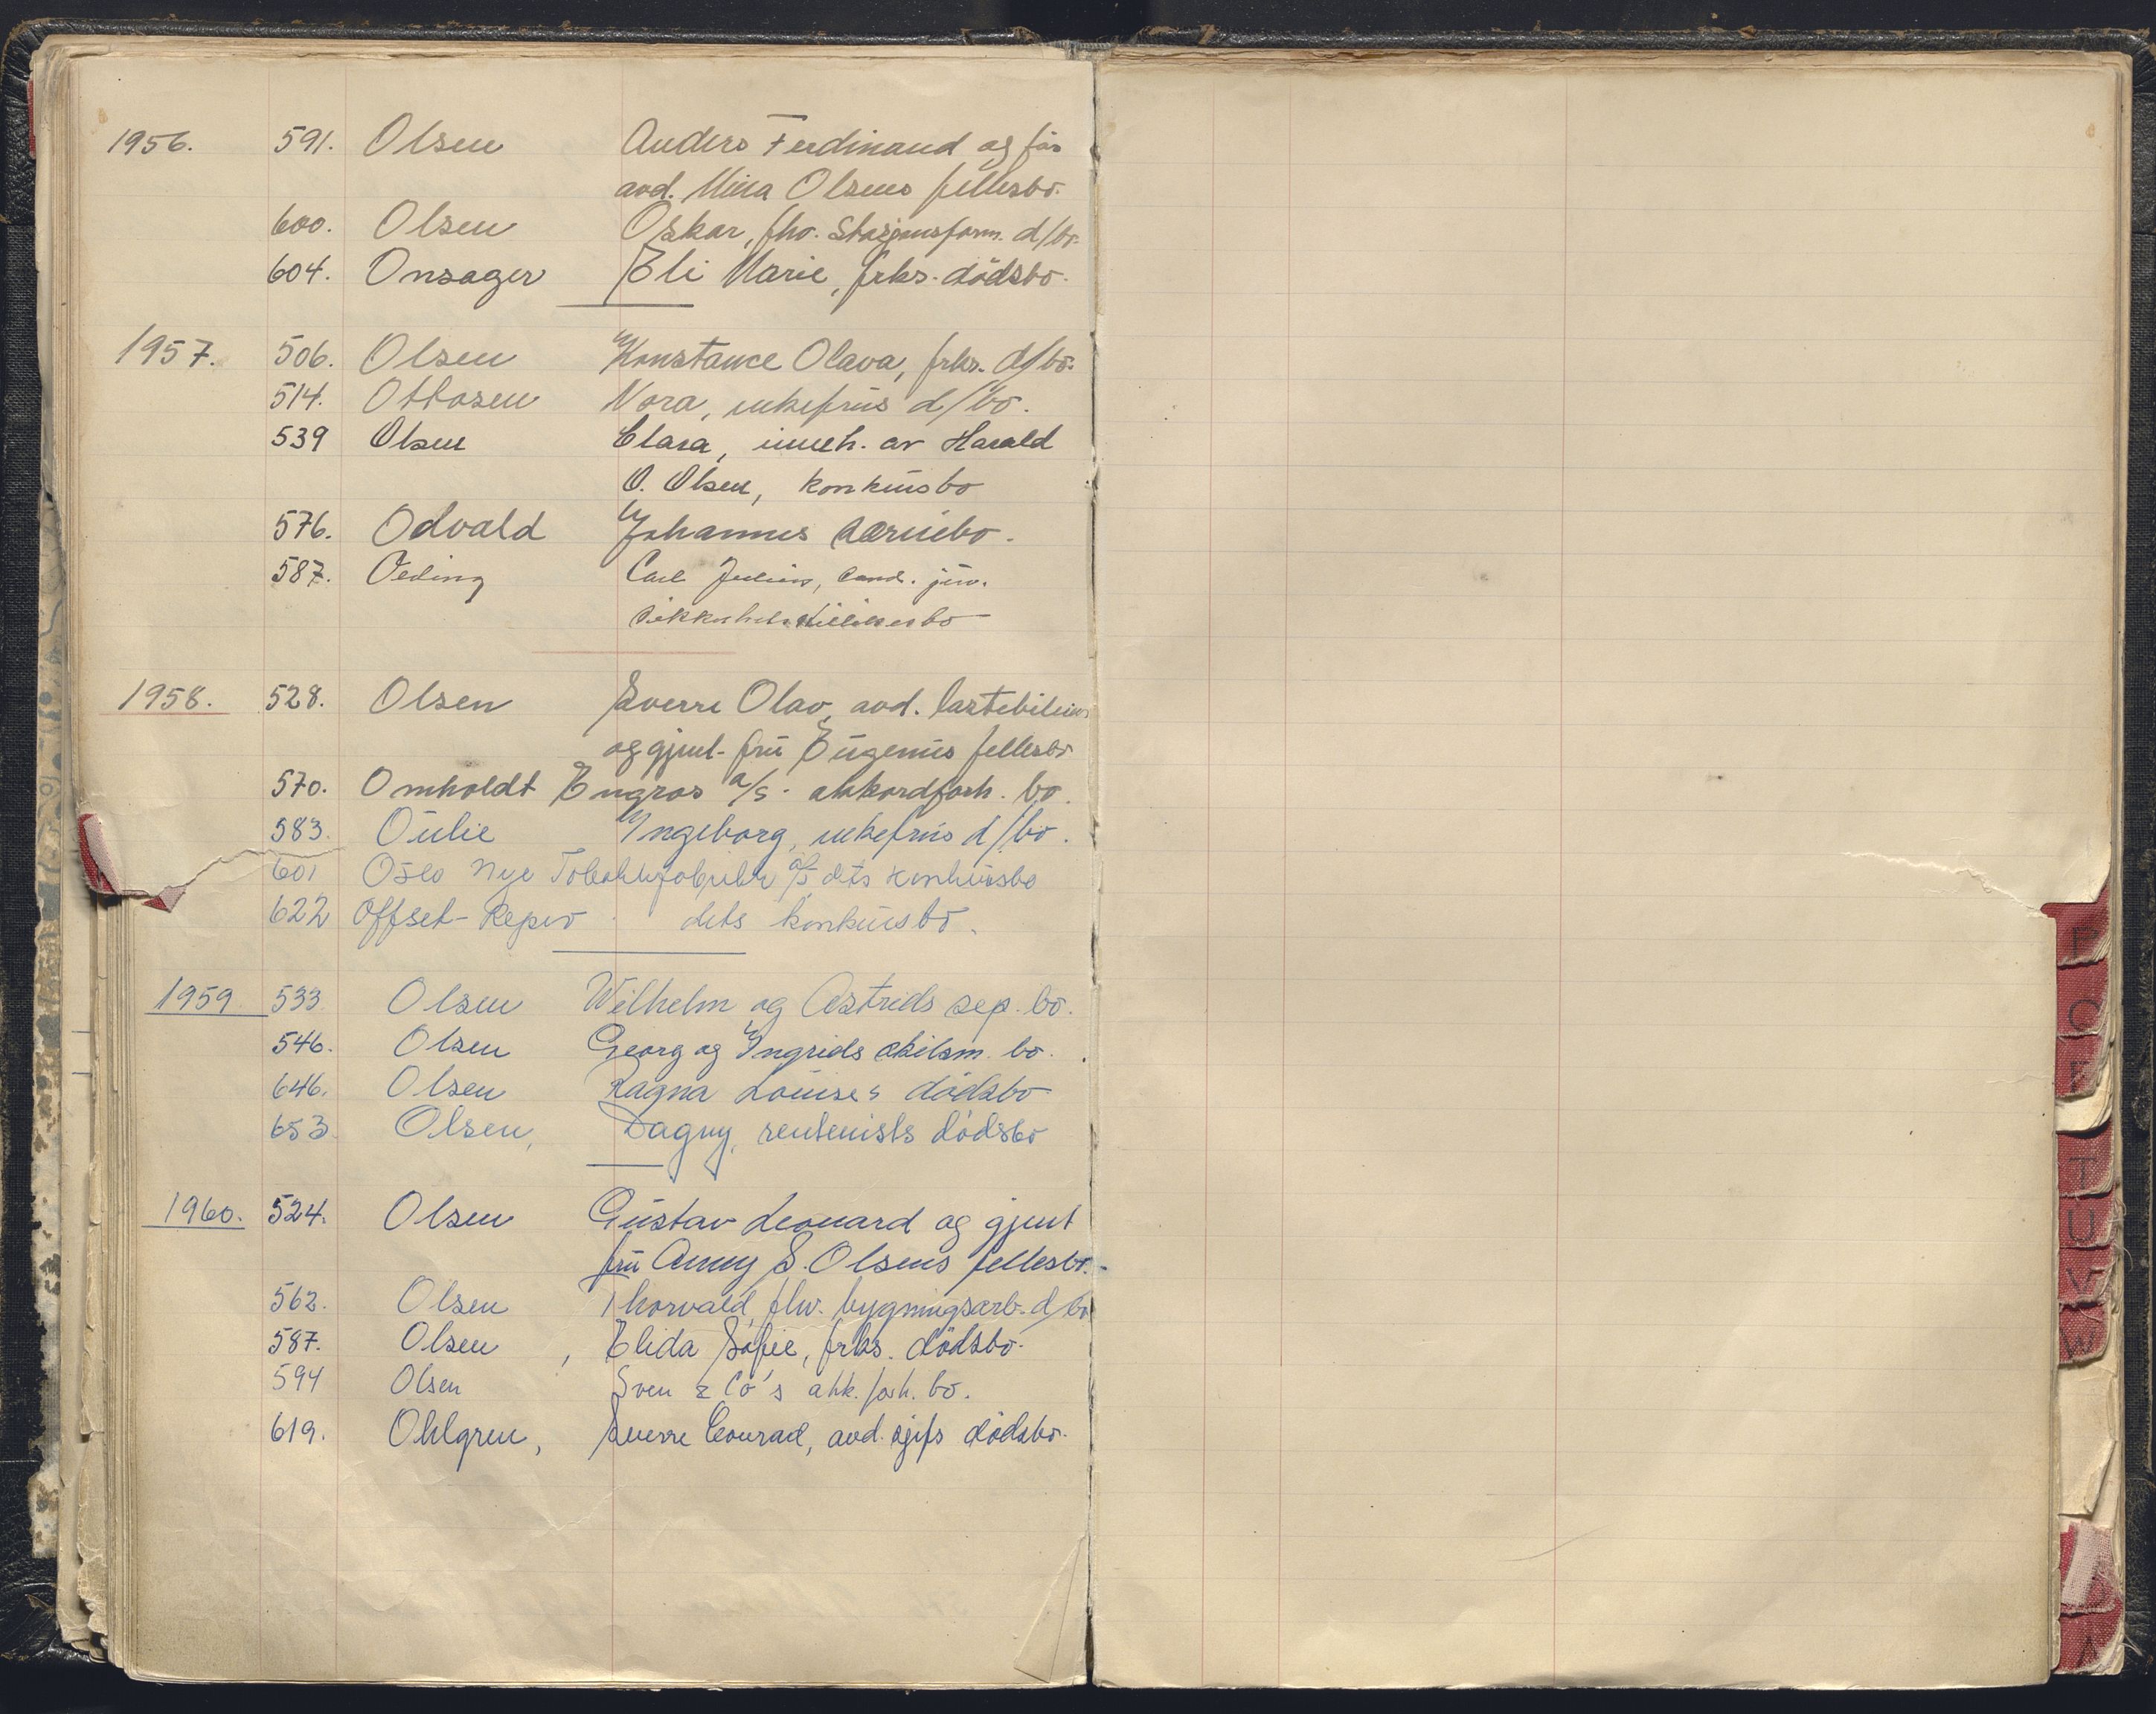 1956. 591. Olsen Anders Ferdinand og frus
avd. Mina Olsens fellesbo.
600. Olsen Oskar, fhv. Stasjonsform. d/bo
604. Onsager Eli Marie, frks. dödsbo.
1957. 506. Olsen Konstance Olava, frks. d/bo.
514. Ottosen Nora, enkefrus d/bo.
539 Olsen Clara, inneh. av Harald
O. Olsen, konkursbo
576. Odvald Johannes
587. Oeding Carl Julius, cand. jur.
1958. 528. Olsen Sverre Olav, avd. lastebileiers
og gjenl. fru Eugenies fellesbo
570. Omholdt Engros a/s. akkordforh. bo.
583. Oulie Ingeborg, enkefrus d/bo.
601 Oslo Nye Tobakkfabrikk a/s dets konkursbo
622 Offset-Repro dets konkursbo.
1959. 533. Olsen Wilhelm og Astrids sep. bo.
546. Olsen Georg og Ingrids skilsm. bo.
646. Olsen Ragna Louises dödsbo
653. Olsen, Dagny, rentenists dödsbo
1960. 524. Olsen Gustav Leonard og gjenl
fru Anny S. Olsens fellesbo.
562. Olsen Thorvald, fhv. bygningsarb. d/bo
587. Olsen, Elida Sofie, frks. dödsbo.
594 Olsen Sven & Co's akk. forh. bo.
619. Ohlgren, Sverre Conrad, avd. sjåfs dödsbo.
P
O
R
T
U
V
W